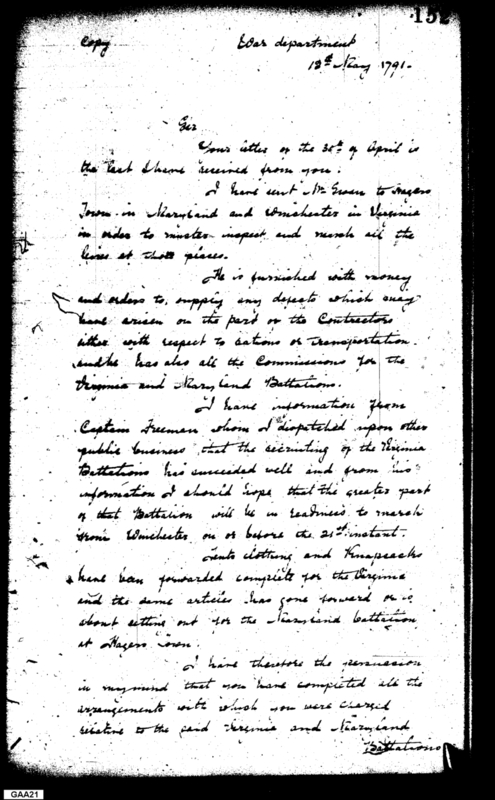 152
Copy
War department
12th May 1791.
Sir
Your letter of the 30th of April is
the last I have received from you.
I have sent Mr to Hagers
Town in Maryland and Winchester in Virginia
in order to muster inspect and march all the
levies at those places.
He is furnished with money
and orders to supply any defects which may
have arisen on the part of the Contractors
either with respect to rations or transportation.
and he has also all the Commissions for the
Virginia and Maryland Battalions.
I have information from
Captain Freeman whom I dispatched upon other
public business that the recruiting of the Virginia
Battalions has succeeded well and from his
information I should hope that the greater part
of that Battalion will be in readiness to march
from Winchester on or before the 21st instant.
Tents clothing and Knapsacks
have been forwarded complete for the Virginia
and the same articles has gone forward or is
about setting out for the Maryland battalion
at Hagers Town.
I have therefore the persuasion
in my mind that you have completed all the
arrangements with which you were charged
relative to the said Virginia and Maryland
Battalions
GAA21